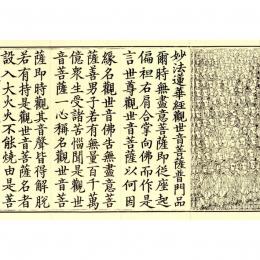 妙法蓮華經觀世音菩薩普門品
爾時無盡意菩薩即從座起
偏袒右肩合掌向佛而作是
言世尊觀世音菩薩以何因
緣名觀世音佛告無盡意菩
薩善男子若有無量百千萬
億衆生受諸苦惱聞是觀世
音菩薩一心稱名觀世音菩
薩即時觀其音聲皆得解脫
若有持是觀世音菩薩名者
設入大火火不能燒由是菩